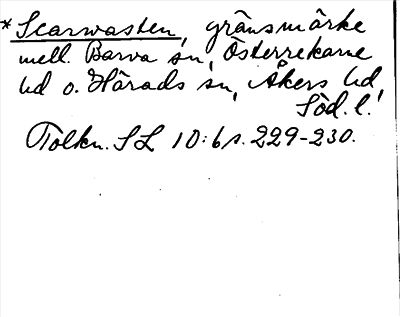 * Scarwasten, gränsmärke
mell. Barva sn, Österrekarne
hd o. Härads sn, Åkers hd,
Söd. l.
Tolkn. SL 10:6 s. 229-230.